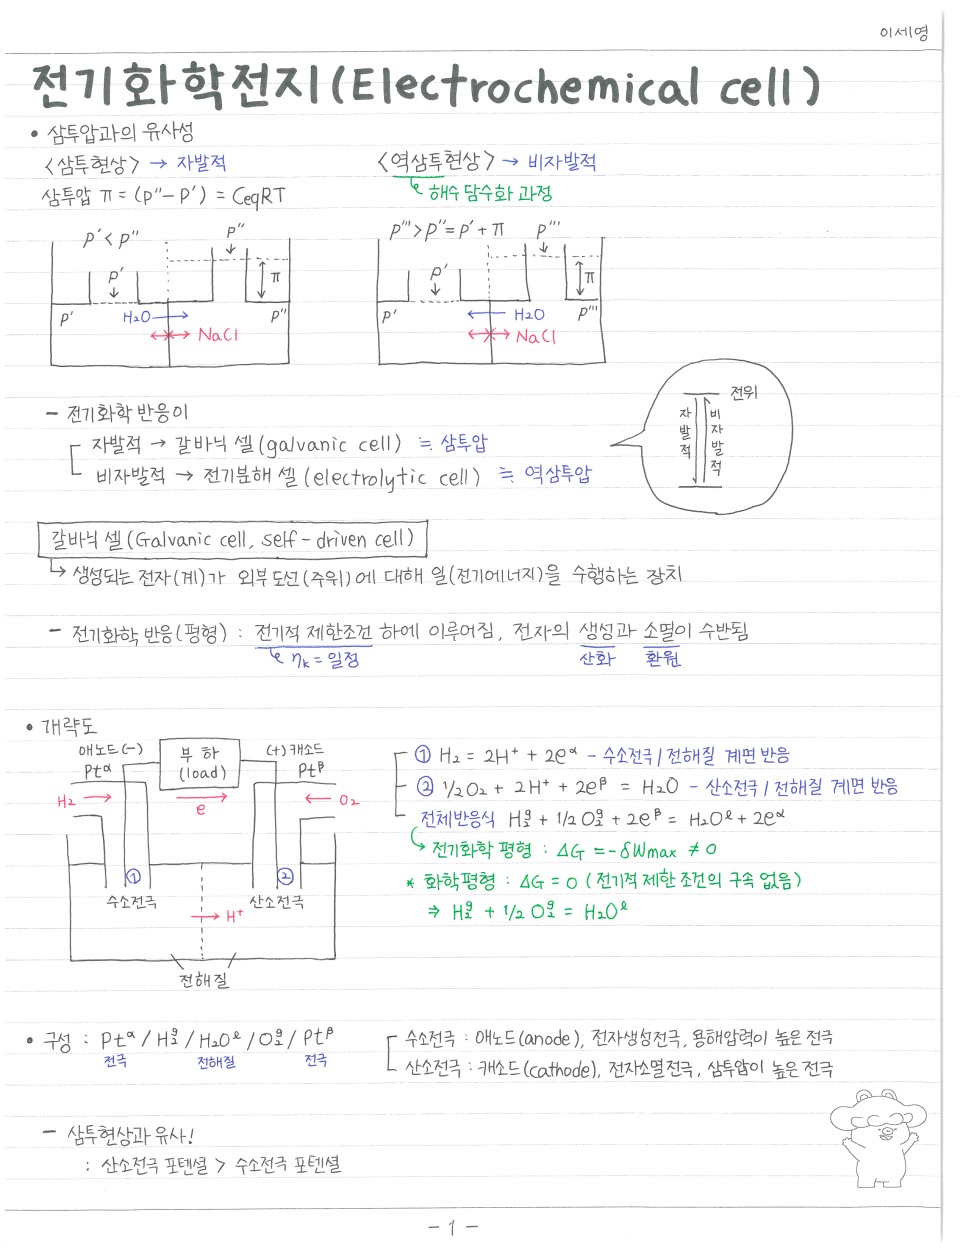 이세영
전기화학전지(Electrochemical cell)
• 삼투압과의 유사성
<삼투현상> → 자발적
삼투압 π = (p''-p') = CeqRT
p' < p''
p''
p'
π
p'
H₂O
p''
NaCl
<역삼투현상> → 비자발적
해수 담수화 과정
p''' > p'' = p' + π
p'''
p'
π
p'
H₂O
p'''
NaCl
- 전기화학 반응이
자발적 → 갈바닉 셀(galvanic cell) ≒ 삼투압
비자발적 → 전기분해 셀(electrolytic cell) ≒ 역삼투압
전위
자발적
비자발적
갈바닉 셀(Galvanic cell, self-driven cell)
↳ 생성되는 전자(계)가 외부도선(주위)에 대해 일(전기에너지)을 수행하는 장치
- 전기화학 반응(평형) : 전기적 제한조건 하에 이루어짐, 전자의 생성과 소멸이 수반됨
ηₖ = 일정
산화
환원
• 개략도
애노드(-)
Ptᵅ
부하
(load)
(+)캐소드
Ptᵝ
H₂ →
e
← O₂
①
②
수소전극
산소전극
→ H⁺
전해질
① H₂ = 2H⁺ + 2eᵅ - 수소전극/전해질 계면 반응
② 1/2O₂ + 2H⁺ + 2eᵝ = H₂O - 산소전극/전해질 계면 반응
전체반응식 H₂ᵍ + 1/2 O₂ᵍ + 2eᵝ = H₂Oˡ + 2eᵅ
↳ 전기화학 평형 : ΔG = -δWmax ≠ 0
* 화학평형 : ΔG = 0 (전기적 제한 조건의 구속 없음)
⇒ H₂ᵍ + 1/2 O₂ᵍ = H₂Oˡ
• 구성 : Ptᵅ / H₂ᵍ / H₂Oˡ / O₂ᵍ / Ptᵝ
전극
전해질
전극
수소전극 : 애노드(anode), 전자생성전극, 용해압력이 높은 전극
산소전극 : 캐소드(cathode), 전자소멸전극, 삼투압이 높은 전극
- 삼투현상과 유사!
: 산소전극 포텐셜 > 수소전극 포텐셜
- 1 -